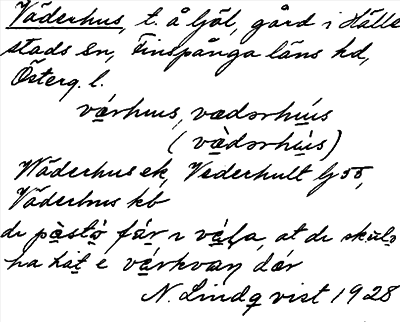 Väderhus, t. å Ljöl, gård i Hälle
stads sn, Finspånga läns hd,
Österg. l.
várhus, vædərhús
(vàdərhús)
Wäderhus ek, Vederhult Ls 55,
Väderhus kb
dɩ pàstó fár ɩ vála, at dɩ skulə
ha hat e várkvan dár
N. Lindqvist 1928